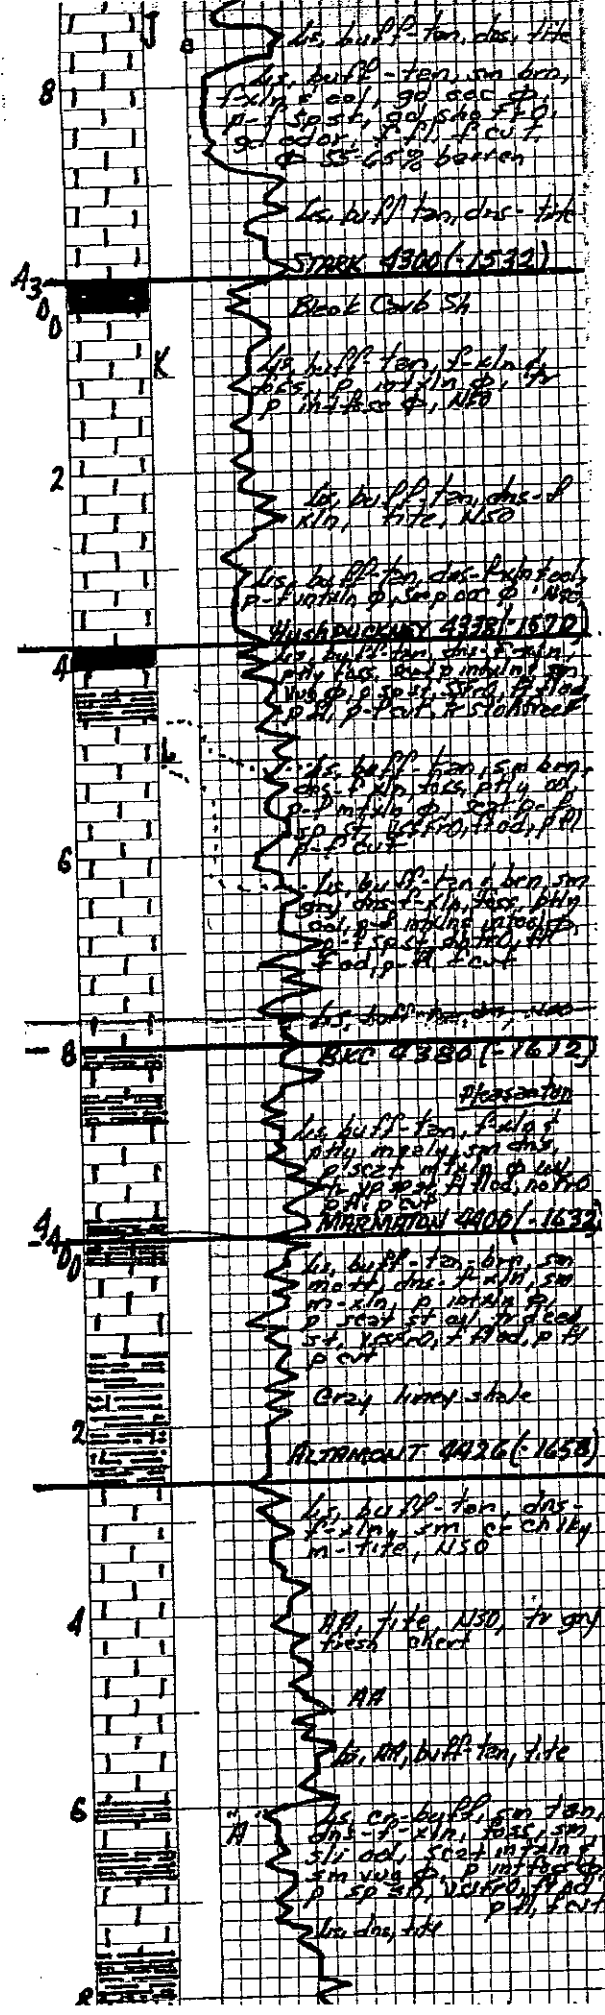 J
Ls, buff-tan, dns, tite
8
Ls, buff-tan, sm brn,
f-xln & ool, gd ooc ϕ,
p-f sp st, gd sho F.O.
gd odor, f fl, f cut
ϕ 55-65% barren
Ls, buff tan, dns-tite
STARK 4300 (-1532)
4300
Black Carb Sh
K
Ls, buff-tan, f-xln &
foss, p intxln ϕ, tr
p intfoss ϕ, NSO
2
Ls, buff-tan, dns-f
xln, tite, NSO
Ls, buff-tan, dns-f-xln & ool,
p-f intxln ϕ, ooc ϕ, NSO
HUSHPUCKNEY 4338 (-1570)
4
Ls, buff-tan, dns-f-xln,
ptly foss, scat p intxln & sm
vug ϕ, p sp st, SSFO, ft od
p fl, p-f cut
L
Ls, buff-tan, sm brn,
dns-f xln, foss, ptly ool,
p-f intxln ϕ, scat p-f
sp st, VSSFO, ft od, p fl
p-f cut
6
Ls, buff-tan & brn, sm
gry, dns-f-xln, foss, ptly
ool, p-f intxln & intool ϕ,
p-f sp st,
f od, p-fl, f cut
Ls, buff-tan, dns, NSO
8
BKC 4380 (-1612)
Pleasanton
Ls, buff-tan, f-xln &
ptly mealy, sm dns,
p scat intxln ϕ
ft od, no FO
p fl, p cut
MARMATON 4400 (-1632)
4400
Ls, buff-tan-brn, sm
mott, dns-f-xln, sm
m-xln, p intxln ϕ,
p scat st, tr dead
st, VSSFO, ft od, p fl
p cut
Gray limey shale
2
ALTAMONT 4426 (-1658)
Ls, buff-tan, dns-
f-xln, sm c-chlky
m-tite, NSO
4
AA, tite, NSO, tr gry
fresh chert
AA
Ls, AA, buff-tan, tite
6
"A"
Ls, cr-buff, sm tan,
dns-f-xln, foss, sm
sli ool, scat intxln &
sm vug ϕ, p intfoss ϕ
p sp st, VSSFO, ft od,
p fl, f cut
Ls, dns, tite
8